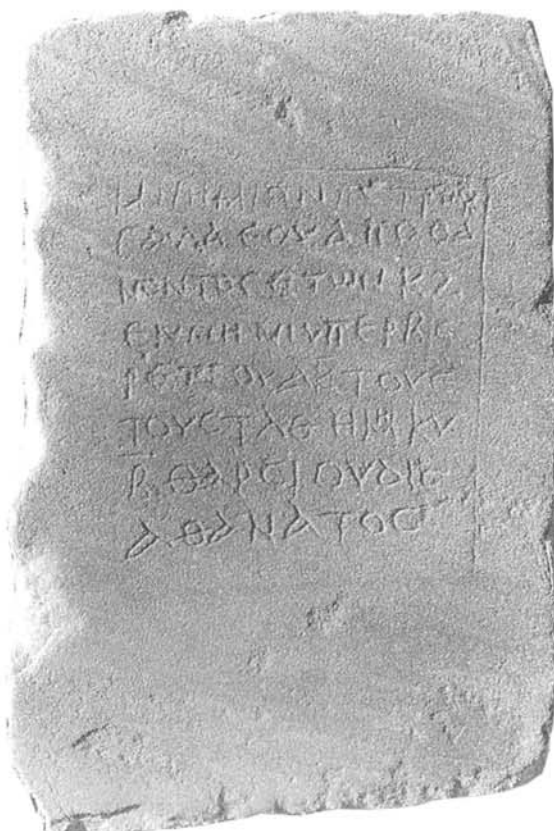 ΜΝΗΜΙΟΝ
ΓΑΛΑΕΟΥ ΑΠΟΘΑ
ΝΟΝΤΟϹ ΕΤωΝ ΚΖ
ΕΝ ΜΗΝΙ ΥΠΕΡΒΕ
ΡΕΤΕΟΥ ΤΟΥ Ε
ΤΟΥϹ ΤΛΕ ΗΜ ΚΥ
Β ΘΑΡϹΙ ΟΥΔΙϹ
ΑΘΑΝΑΤΟϹ